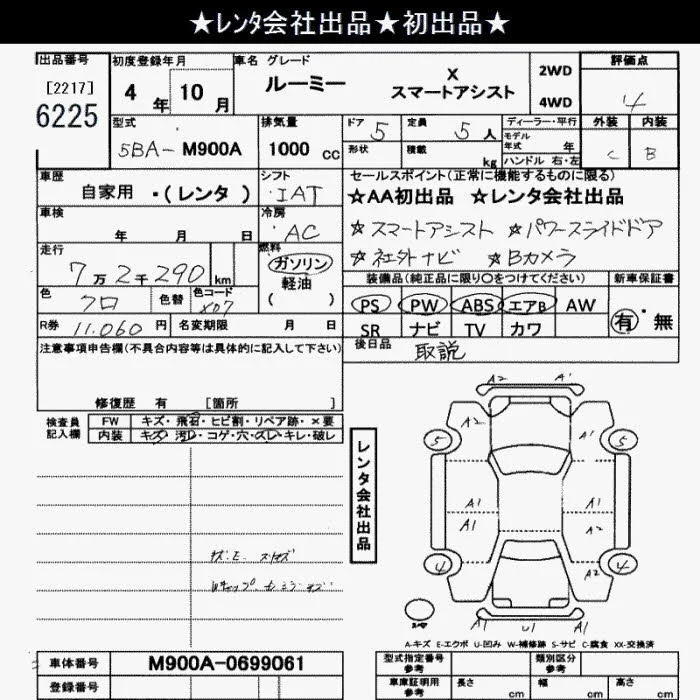 ★レンタ会社出品★初出品★
出品番号 初度登録年月 車名 グレード 評価点
[2217] 4 年 10 月 ルーミー X 2WD
6225 スマートアシスト 4WD 4
型式 排気量 ドア 5 定員 5 人 ディーラー・平行 外装 内装
5BA- M900A 1000 cc 形状 積載 kg モデル年式 年 C B
ハンドル 右・左
車歴 シフト セールスポイント(正常に機能するものに限る)
自家用 ・(レンタ ) ・IAT ☆AA初出品 ☆レンタ会社出品
車検 冷房 ☆スマートアシスト ☆パワースライドドア
年 月 日 ・AC ☆社外ナビ ☆Bカメラ
走行 燃料 装備品(純正品に限り〇をつけてください) 新車保証書
7万2千290 km ガソリン PS PW ABS エアB AW 有・無
色 クロ 色替 色コード X07 軽油 SR ナビ TV カワ
( )
R券 11.060 円 名変期限 月 日 後日品 取説
注意事項申告欄(不具合内容等は具体的に記入して下さい)
修復歴 有 [箇所 ]
検査員記入欄 FW キズ・飛石・ヒビ割・リペア跡・×要
内装 キズ・汚レ・コゲ・穴・スレ・キレ・破レ
レンタ会社出品
A2 A1
A2 A1
5 5
A1 A1
A1 A2
4 A2 4
A1 U1 A1
A-キズ E-エクボ U-凹み W-補修跡 S-サビ C-腐食 XX-交換済
車体番号 M900A-0699061 型式指定番号 参考 類別区分 参考
登録番号 車庫証明用 参考 長さ cm 幅 cm 高さ cm